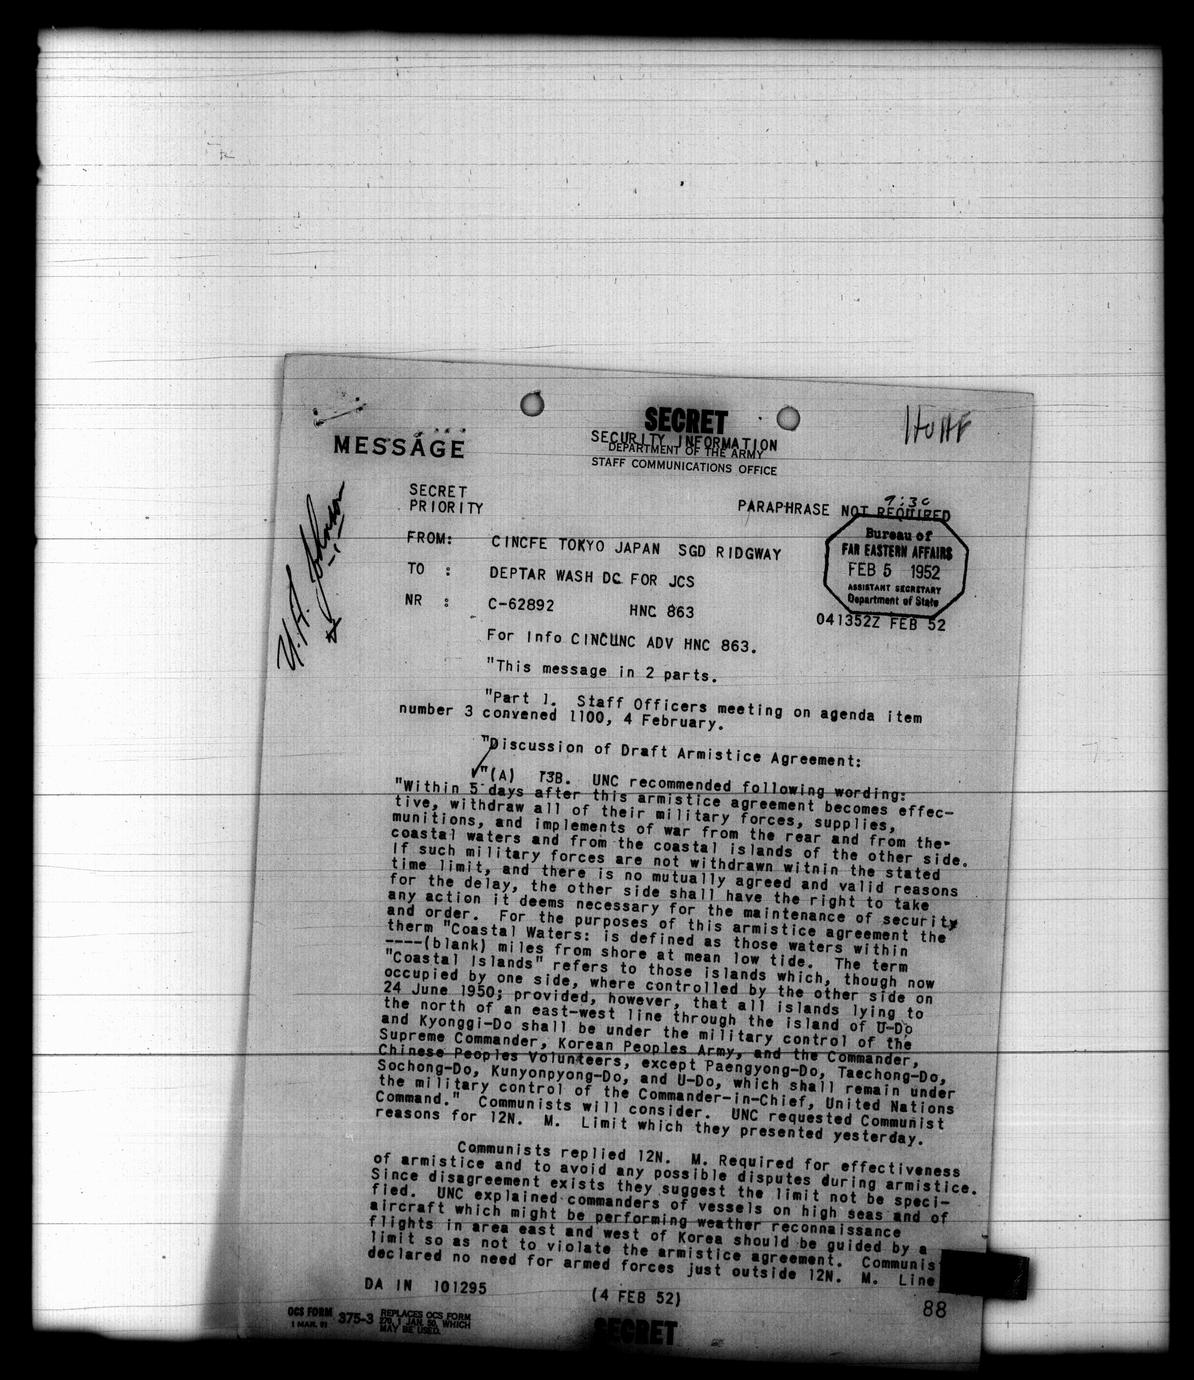 SECRET
HUHF
SECURITY INFORMATION
MESSAGE
DEPARTMENT OF THE ARMY
STAFF COMMUNICATIONS OFFICE
SECRET
PRIORITY
9:30
PARAPHRASE NOT REQUIRED
U.A. Johnson
FROM: CINCFE TOKYO JAPAN SGD RIDGWAY
Bureau of
FAR EASTERN AFFAIRS
FEB 5 1952
ASSISTANT SECRETARY
Department of State
TO : DEPTAR WASH DC FOR JCS
NR : C-62892 HNC 863
041352Z FEB 52
For Info CINCUNC ADV HNC 863.
"This message in 2 parts.
"Part 1. Staff Officers meeting on agenda item
number 3 convened 1100, 4 February.
"Discussion of Draft Armistice Agreement:
"(A) 13B. UNC recommended following wording:
"Within 5 days after this armistice agreement becomes effec-
tive, withdraw all of their military forces, supplies,
munitions, and implements of war from the rear and from the
coastal waters and from the coastal islands of the other side.
If such military forces are not withdrawn witnin the stated
time limit, and there is no mutually agreed and valid reasons
for the delay, the other side shall have the right to take
any action it deems necessary for the maintenance of security
and order. For the purposes of this armistice agreement the
therm "Coastal Waters: is defined as those waters within
----(blank) miles from shore at mean low tide. The term
"Coastal Islands" refers to those islands which, though now
occupied by one side, where controlled by the other side on
24 June 1950; provided, however, that all islands lying to
the north of an east-west line through the island of U-Do
and Kyonggi-Do shall be under the military control of the
Supreme Commander, Korean Peoples Army, and the Commander,
Chinese Peoples Volunteers, except Paengyong-Do, Taechong-Do,
Sochong-Do, Kunyonpyong-Do, and U-Do, which shall remain under
the military control of the Commander-in-Chief, United Nations
Command." Communists will consider. UNC requested Communist
reasons for 12N. M. Limit which they presented yesterday.
Communists replied 12N. M. Required for effectiveness
of armistice and to avoid any possible disputes during armistice.
Since disagreement exists they suggest the limit not be speci-
fied. UNC explained commanders of vessels on high seas and of
aircraft which might be performing weather reconnaissance
flights in area east and west of Korea should be guided by a
limit so as not to violate the armistice agreement. Communis
declared no need for armed forces just outside 12N. M. Line
DA IN 101295 (4 FEB 52)
88
OCS FORM 375-3 REPLACES OCS FORM
1 MAR. 51 270, 1 JAN. 50, WHICH
MAY BE USED.
SECRET